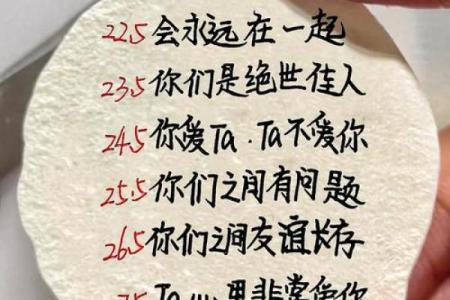 22.5会永远在一起
23.5你们是绝世佳人
24.5你爱Ta.Ta不爱你
25.5你们之间有问题
26.5你们之间友谊长存
7.5Ta心里非常爱你